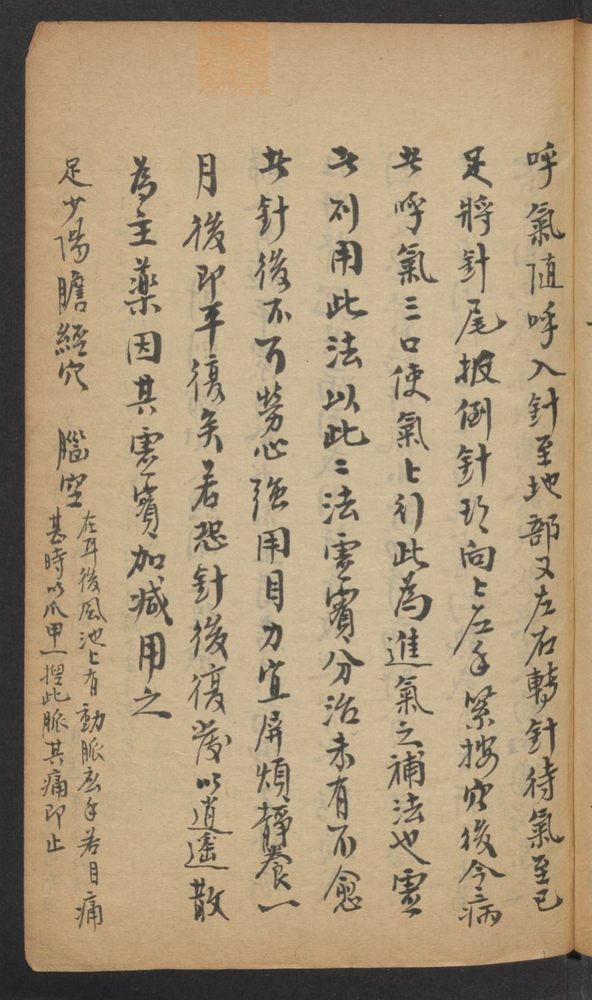 呼氣随呼入針至地部又左右轉針待氣至已
足將針尾扳倒針頭向上左手緊按穴後令病
者呼氣三口使氣上行此為進氣之補法也虛
者則用此法以此二法虛實分治未有不愈
者針後不可勞心強用目力宜屏煩靜養一
月後即平復矣若恐針後復發以逍遙散
為主藥因其虛實加減用之
足少陽膽經穴 腦空
在耳後風池上有動脈應手若目痛
甚時以爪甲掐此脈其痛即止